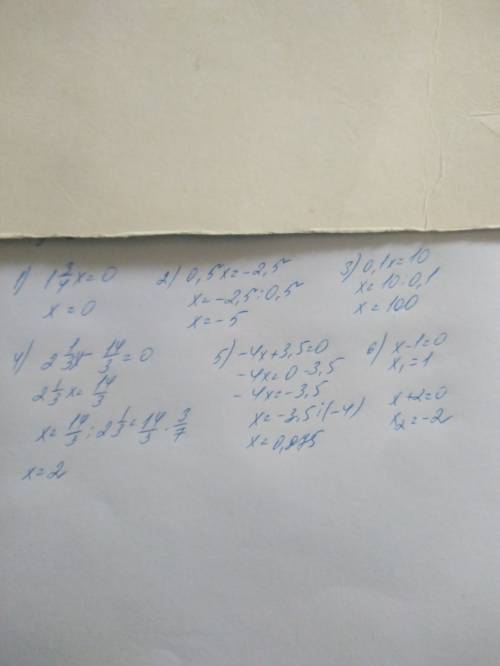 1) 1 3/4 x = 0
x = 0
2) 0,5x = -2,5
x = -2,5 : 0,5
x = -5
3) 0,1x = 10
x = 10 : 0,1
x = 100
4) 2 1/3 x - 14/3 = 0
2 1/3 x = 14/3
x = 14/3 : 2 1/3 = 14/3 · 3/7
x = 2
5) -4x + 3,5 = 0
-4x = 0 - 3,5
-4x = -3,5
x = -3,5 : (-4)
x = 0,875
6) x - 1 = 0
x₁ = 1
x + 2 = 0
x₂ = -2